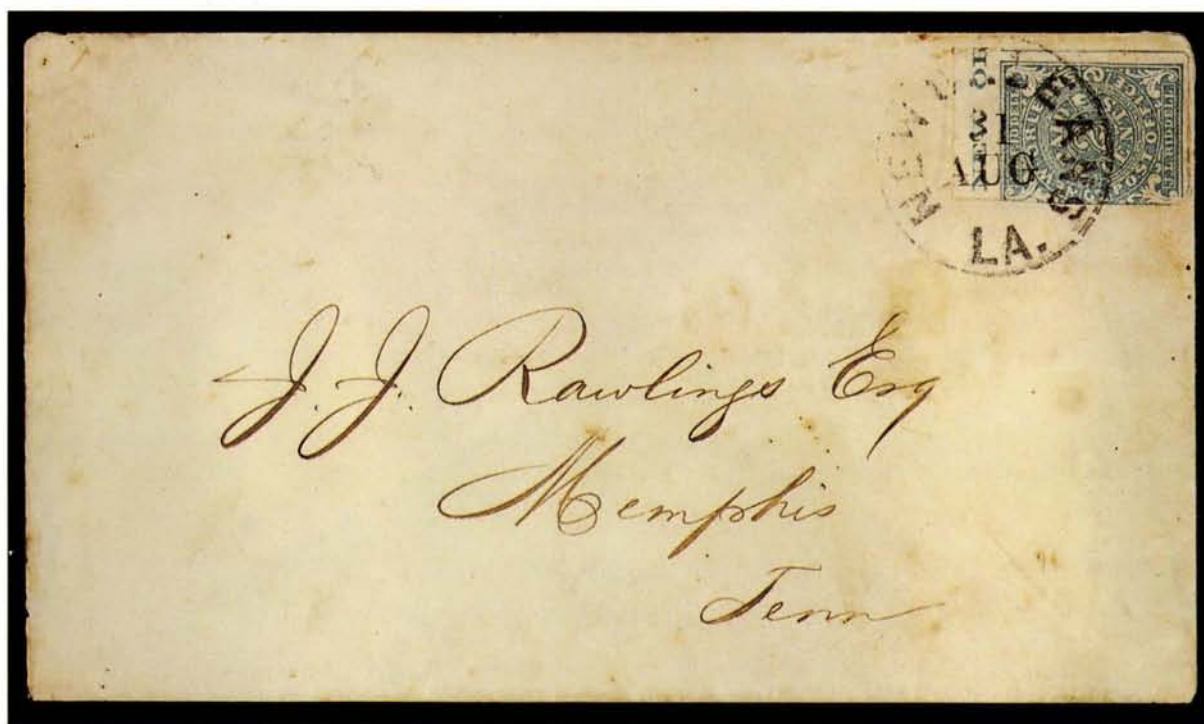 NEW ORLEANS
1
AUG
LA.
RIDDELL
J. J. Rawlings Esq
Memphis
Tenn